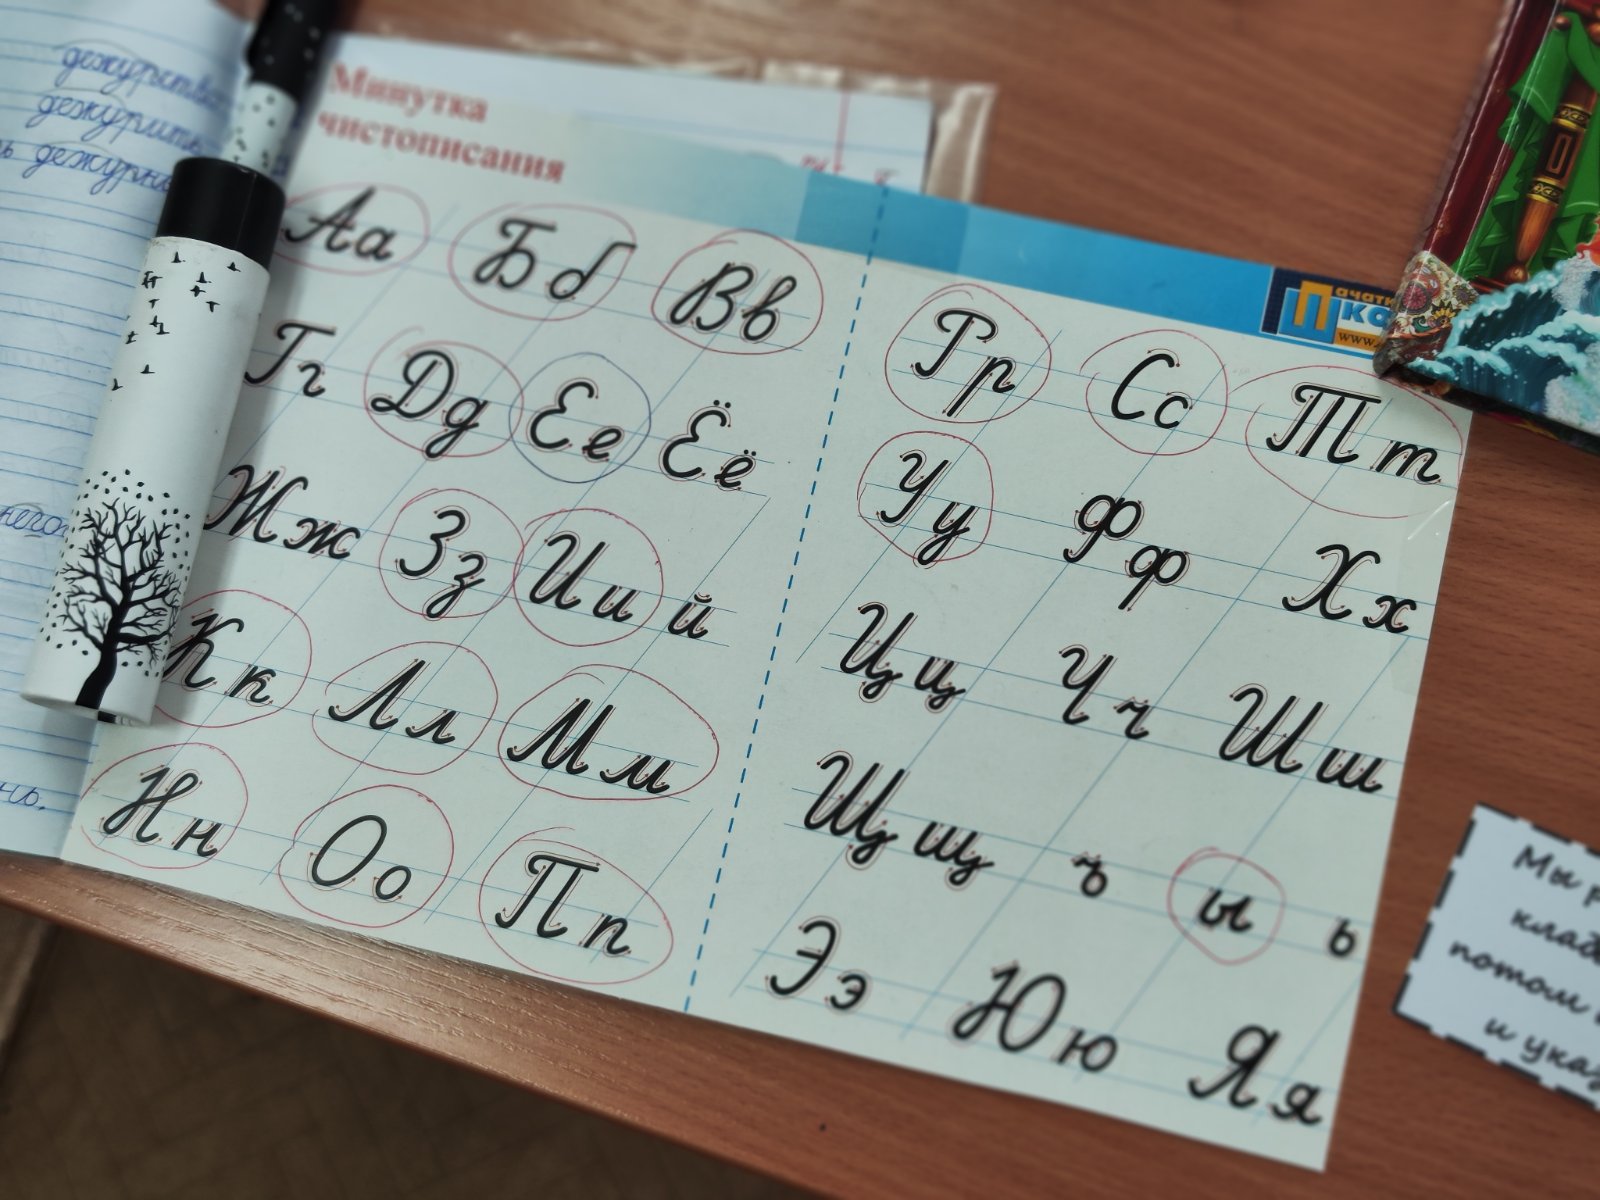 дежурство
дежурить
дежурны
него
нь.
Минутка
чистописания
Аа Бб Вв
Гг Дд Ее Ёё
Жж Зз Ии й
Кк Лл Мм
Нн Оо Пп
Рр Сс Тт
Уу Фф Хх
Цц Чч Шш
Щщ ъ ы ь
Ээ Юю Яя
www.
Мы
потом
и